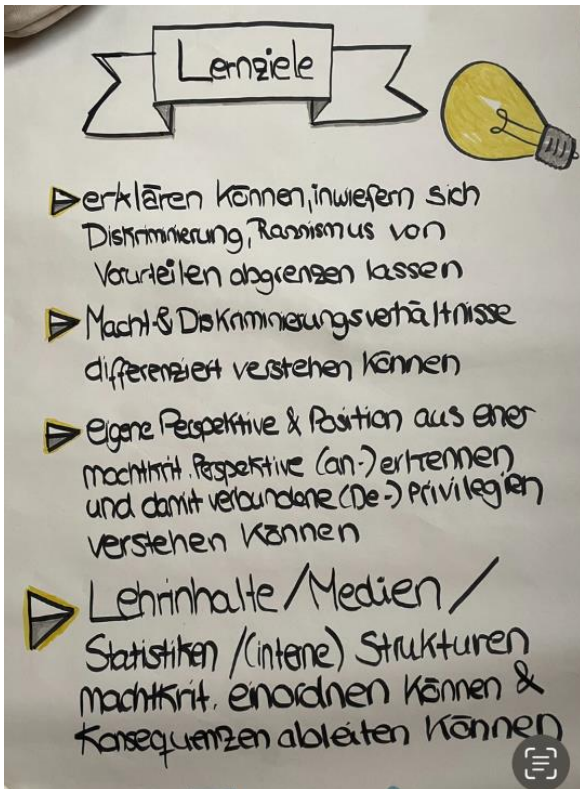 Lernziele
erklären können, inwiefern sich
Diskriminierung, Rassismus von
Vorurteilen abgrenzen lassen
Macht- & Diskriminierungsverhältnisse
differenziert verstehen können
eigene Perspektive & Position aus einer
machtkrit. Perspektive (an-) erkennen
und damit verbundene (De-) Privilegien
verstehen können
Lehrinhalte / Medien /
Statistiken / (interne) Strukturen
machtkrit. einordnen können &
Konsequenzen ableiten können